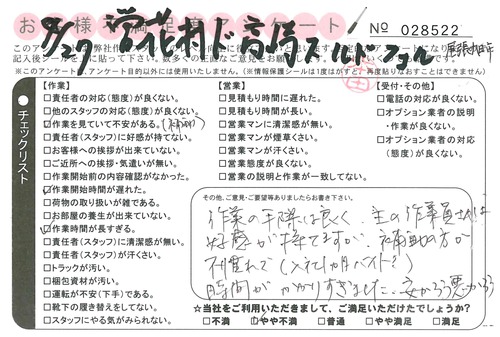 お客様満足度アンケート
№ 028522
※このアンケート、アンケート目的以外には使用いたしません。(※情報保護シールは1度はがすと、再度貼りなおすことはできません)
チェックリスト
【作業】
□責任者の対応(態度)が良くない。
□他のスタッフの対応(態度)が良くない。
□作業を見ていて不安がある。(補助)
□責任者(スタッフ)に好感が持てない。
□お客様への挨拶が出来ていない。
□ご近所への挨拶・気遣いが無い。
□作業開始前の内容確認がなかった。
□作業開始時間が遅れた。
□荷物の取り扱いが雑である。
□お部屋の養生が出来ていない。
□作業時間が長すぎる。
□責任者(スタッフ)に清潔感が無い。
□責任者(スタッフ)が汗くさい。
□トラックが汚い。
□梱包資材が汚い。
□運転が不安(下手)である。
□靴下の履き替えをしてない。
□スタッフにやる気がみられない。
【営業】
□見積もり時間に遅れた。
□見積もり時間が長い。
□営業マンに清潔感が無い。
□営業マンが煙草くさい。
□営業マンが汗くさい。
□営業態度が良くない。
□営業の説明と作業が一致してない。
【受付・その他】
□電話の対応が良くない。
□オプション業者の説明
・作業が良くない。
□オプション業者の対応
(態度)が良くない。
その他、ご意見・ご要望等ありましたらお書き下さい。
作業の手際は良く、主の作業員さんは
好感が持てますが、補助の方が
不慣れで(入社1カ月バイト?)
時間がかかりすぎました。
☆当社をご利用いただきまして、ご満足いただけたでしょうか?
□不満 □やや不満 □普通 □やや満足 □満足